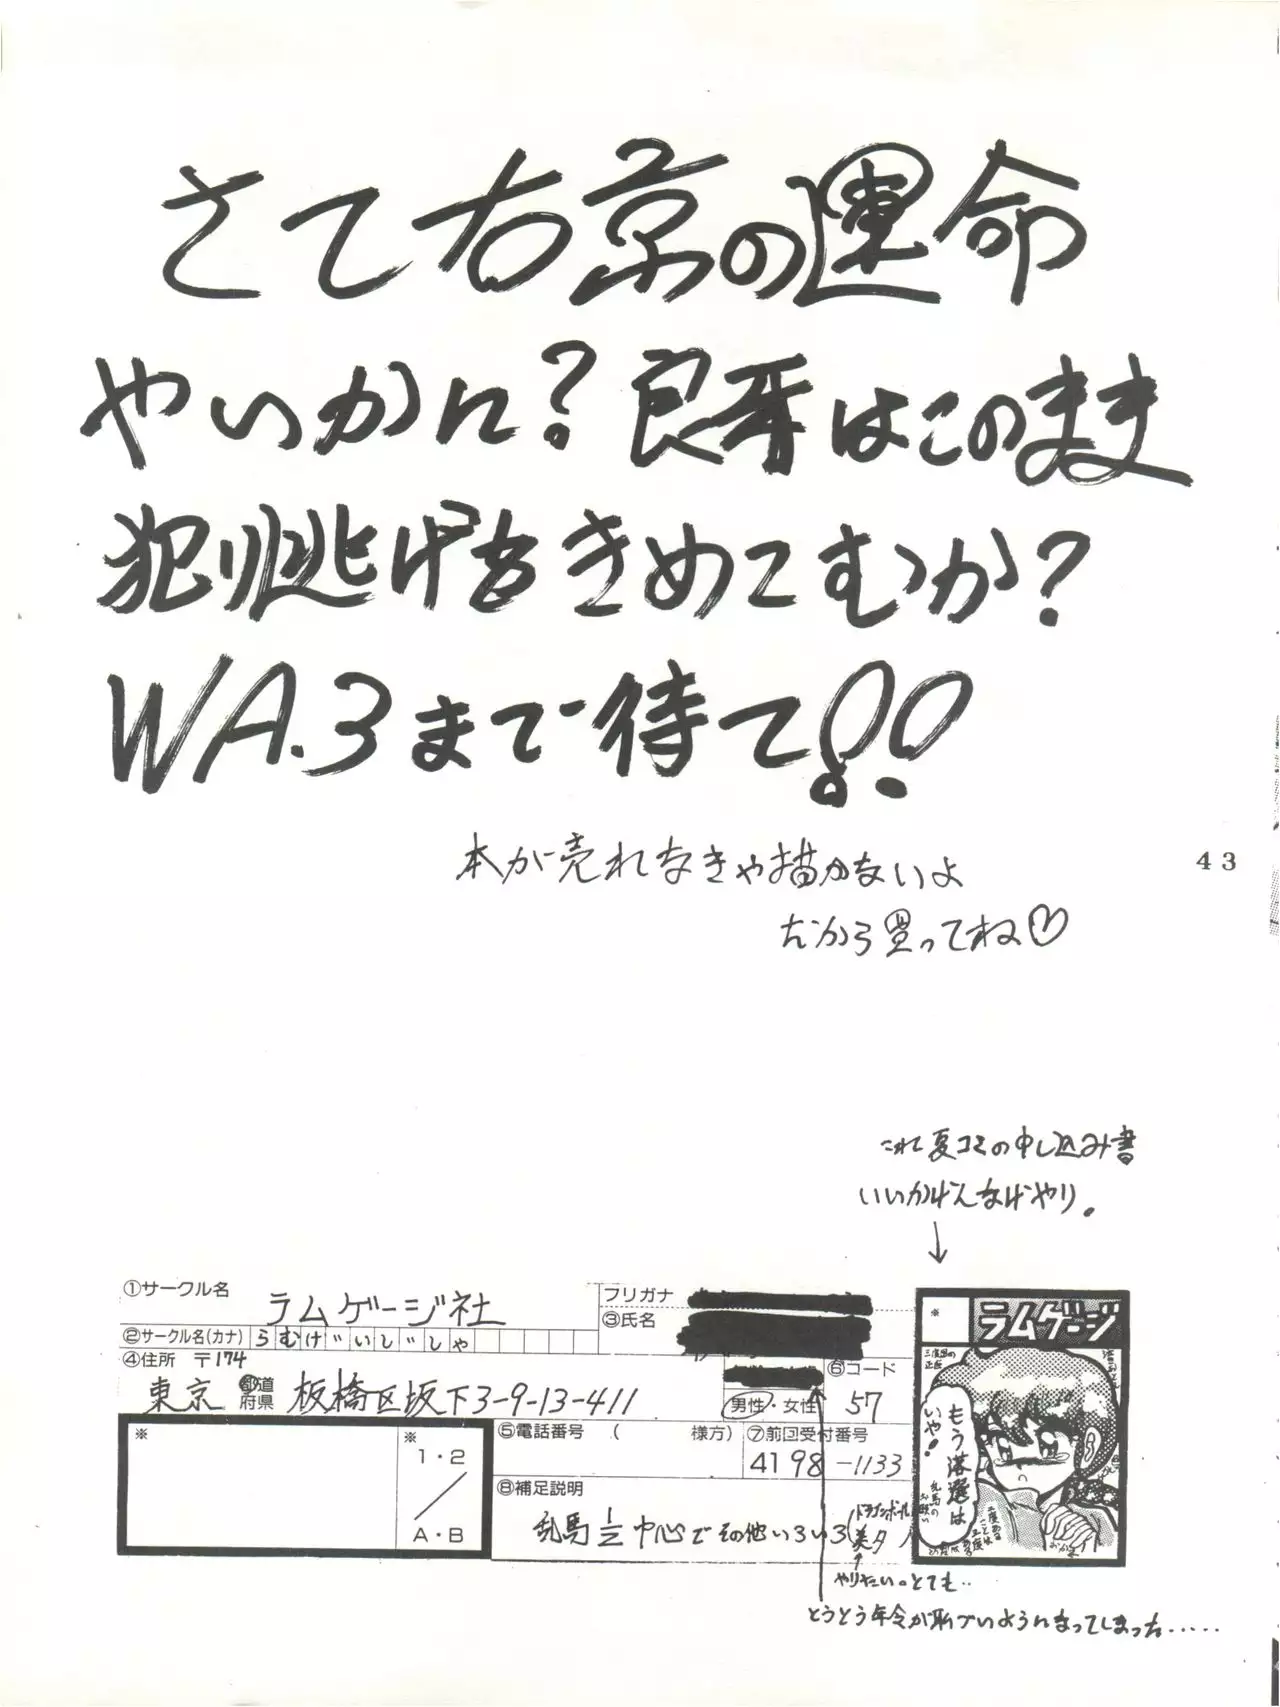 さて右京の運命
やいかに?良牙はこのまま
犯り逃げをきめてむか?
WA.3まで待て!!
本が売れなきゃ描かないよ
だから買ってね♡
43
これ夏コミの申し込み書
いいかげんなげやり。
①サークル名
ラムゲージ社
②サークル名(カナ) らむげいじしゃ
フリガナ
③氏名
④住所 〒174
東京 都道府県 板橋区坂下3-9-13-411
男性・女性
⑥コード
57
⑤電話番号 ( 様方)
⑦前回受付番号
4198-1133
⑧補足説明
乱馬½中心でその他いろいろ(ドラゴンボール 美夕
※
※
1・2
A・B
※
ラムゲージ
もう落選は
いや!
乱馬の
お願い
二度ある
ことは
三度ある
三度目の
正直
おかま
やりたい。とても..
とうとう年令が恥ずいようになってしまった.....